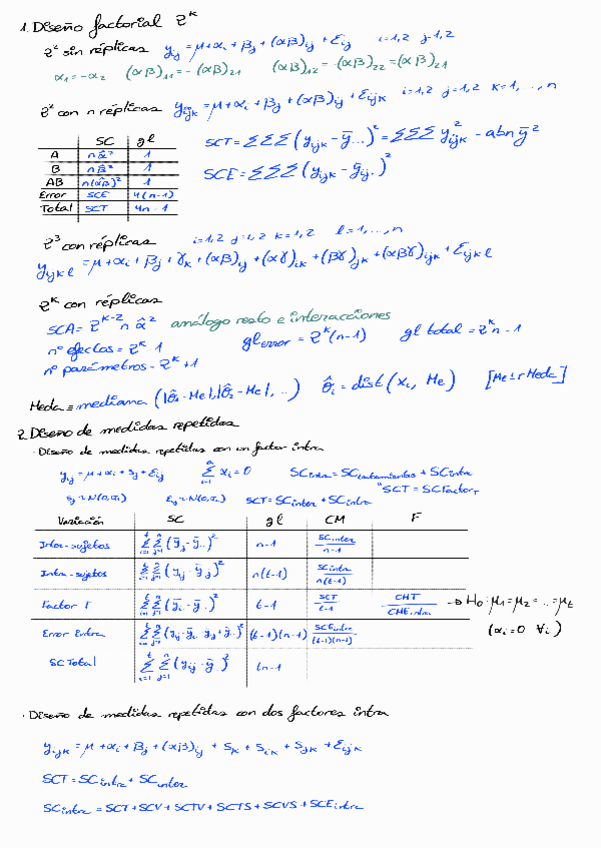 1. Diseño factorial 2^k
2² sin réplicas y_ij = μ + α_i + β_j + (αβ)_ij + ε_ij i=1,2 j=1,2
α_1 = -α_2 (αβ)_11 = -(αβ)_21 (αβ)_12 = -(αβ)_22 = (αβ)_21
2² con n réplicas y_ijk = μ + α_i + β_j + (αβ)_ij + ε_ijk i=1,2 j=1,2 k=1,...,n
SC gl
A nα̂² 1
B nβ̂² 1
AB n(α̂β)² 1
Error SCE 4(n-1)
Total SCT 4n-1
SCT = ΣΣΣ(y_ijk - ȳ...)² = ΣΣΣ y²_ijk - abnȳ²
SCE = ΣΣΣ(y_ijk - ȳ_ij.)²
2³ con réplicas i=1,2 j=1,2 k=1,2 l=1,...,n
y_ijkl = μ + α_i + β_j + γ_k + (αβ)_ij + (αγ)_ik + (βγ)_jk + (αβγ)_ijk + ε_ijkl
2^k con réplicas
SCA = 2^(k-2) n α̂² análogo resto e interacciones
nº efectos = 2^k 1 gl error = 2^k(n-1) gl total = 2^k n - 1
nº parámetros = 2^k + 1
Meda = mediana (|θ̂_1 - Me|, |θ̂_2 - Me|, ...) θ̂_i = dist(x_i, Me) [Me ± r Meda]
2. Diseño de medidas repetidas
· Diseño de medidas repetidas con un factor intra
y_ij = μ + α_i + s_j + ε_ij Σ α_i = 0 SCintra = SCtratamientos + SCintra
s_j ~ N(0,σ_s) ε_ij ~ N(0,σ_ε) SCT = SCinter + SCintra "SCT = SCFactor_T
Variación SC gl CM F
Inter-sujetos ΣΣ(ȳ_.j - ȳ..)² n-1 SCinter/(n-1)
Intra-sujetos ΣΣ(y_ij - ȳ_.j)² n(t-1) SCintra/(n(t-1))
Factor T ΣΣ(ȳ_i. - ȳ..)² t-1 SCT/(t-1) CMT/CMEintra → H_0: μ_1 = μ_2 = ... = μ_t
(α_i = 0 ∀i)
Error Intra ΣΣ(y_ij - ȳ_i. - ȳ_.j + ȳ..)² (t-1)(n-1) SCEintra/((t-1)(n-1))
SC Total ΣΣ(y_ij - ȳ..)² tn-1
· Diseño de medidas repetidas con dos factores intra
y_ijk = μ + α_i + β_j + (αβ)_ij + s_k + s_ik + s_jk + ε_ijk
SCT = SCintra + SCinter
SCintra = SCT + SCV + SCTV + SCTS + SCVS + SCEintra